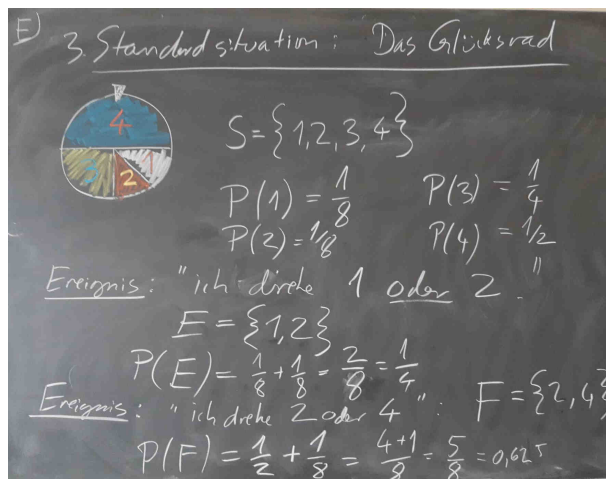 E) 3. Standardsituation: Das Glücksrad
4
3 2 1
S={1,2,3,4}
P(1) = 1/8 P(3) = 1/4
P(2) = 1/8 P(4) = 1/2
Ereignis: "ich drehe 1 oder 2."
E = {1,2}
P(E) = 1/8 + 1/8 = 2/8 = 1/4
Ereignis: "ich drehe 2 oder 4": F = {2,4}
P(F) = 1/2 + 1/8 = 4+1/8 = 5/8 = 0,625